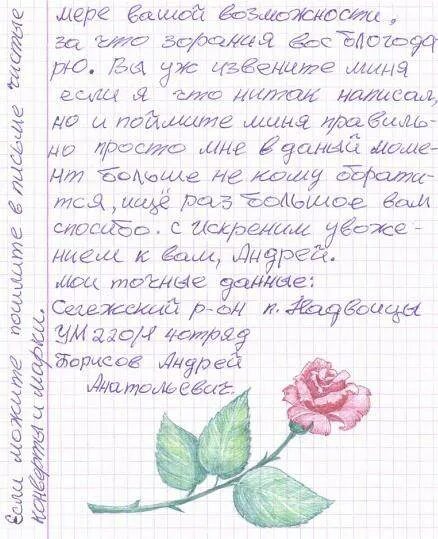 мере вашой возможности,
за что зорания вос блогода
рю. Вы уж извените миня
если я что нитак написал,
но и поймите миня правиль-
но просто мне в даный моме-
нт больше не кому обрати-
тся, ищё раз большое вам
спосибо. с Искреним увоже-
нием к вам, Андрей.
мои точные данные:
Сегежский р-он п. Надвоицы
УМ 220/1 4отряд
Борисов Андрей
Анатольевич.
Если можите пошлите в письме чистые
конверты и марки.